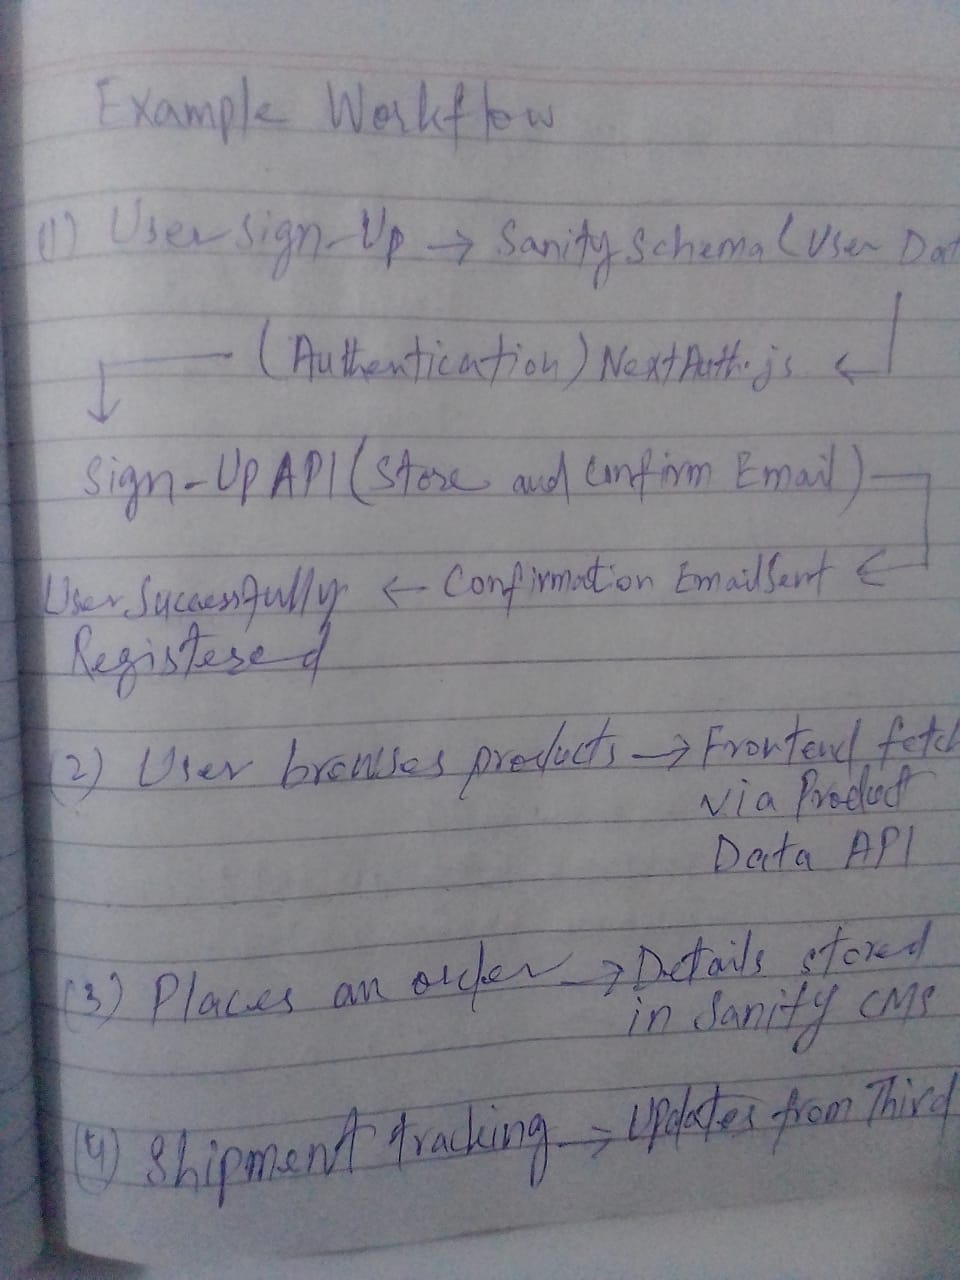 Example Workflow
(1) User Sign-Up → Sanity Schema (User Dat
(Authentication) NextAuth.js ←
Sign-Up API (Store and Confirm Email)
User Successfully ← Confirmation Email Sent ←
Registered
(2) User browses products → Frontend fetch
via Product
Data API
(3) Places an order → Details stored
in Sanity CMS
(4) Shipment tracking → Updates from Third